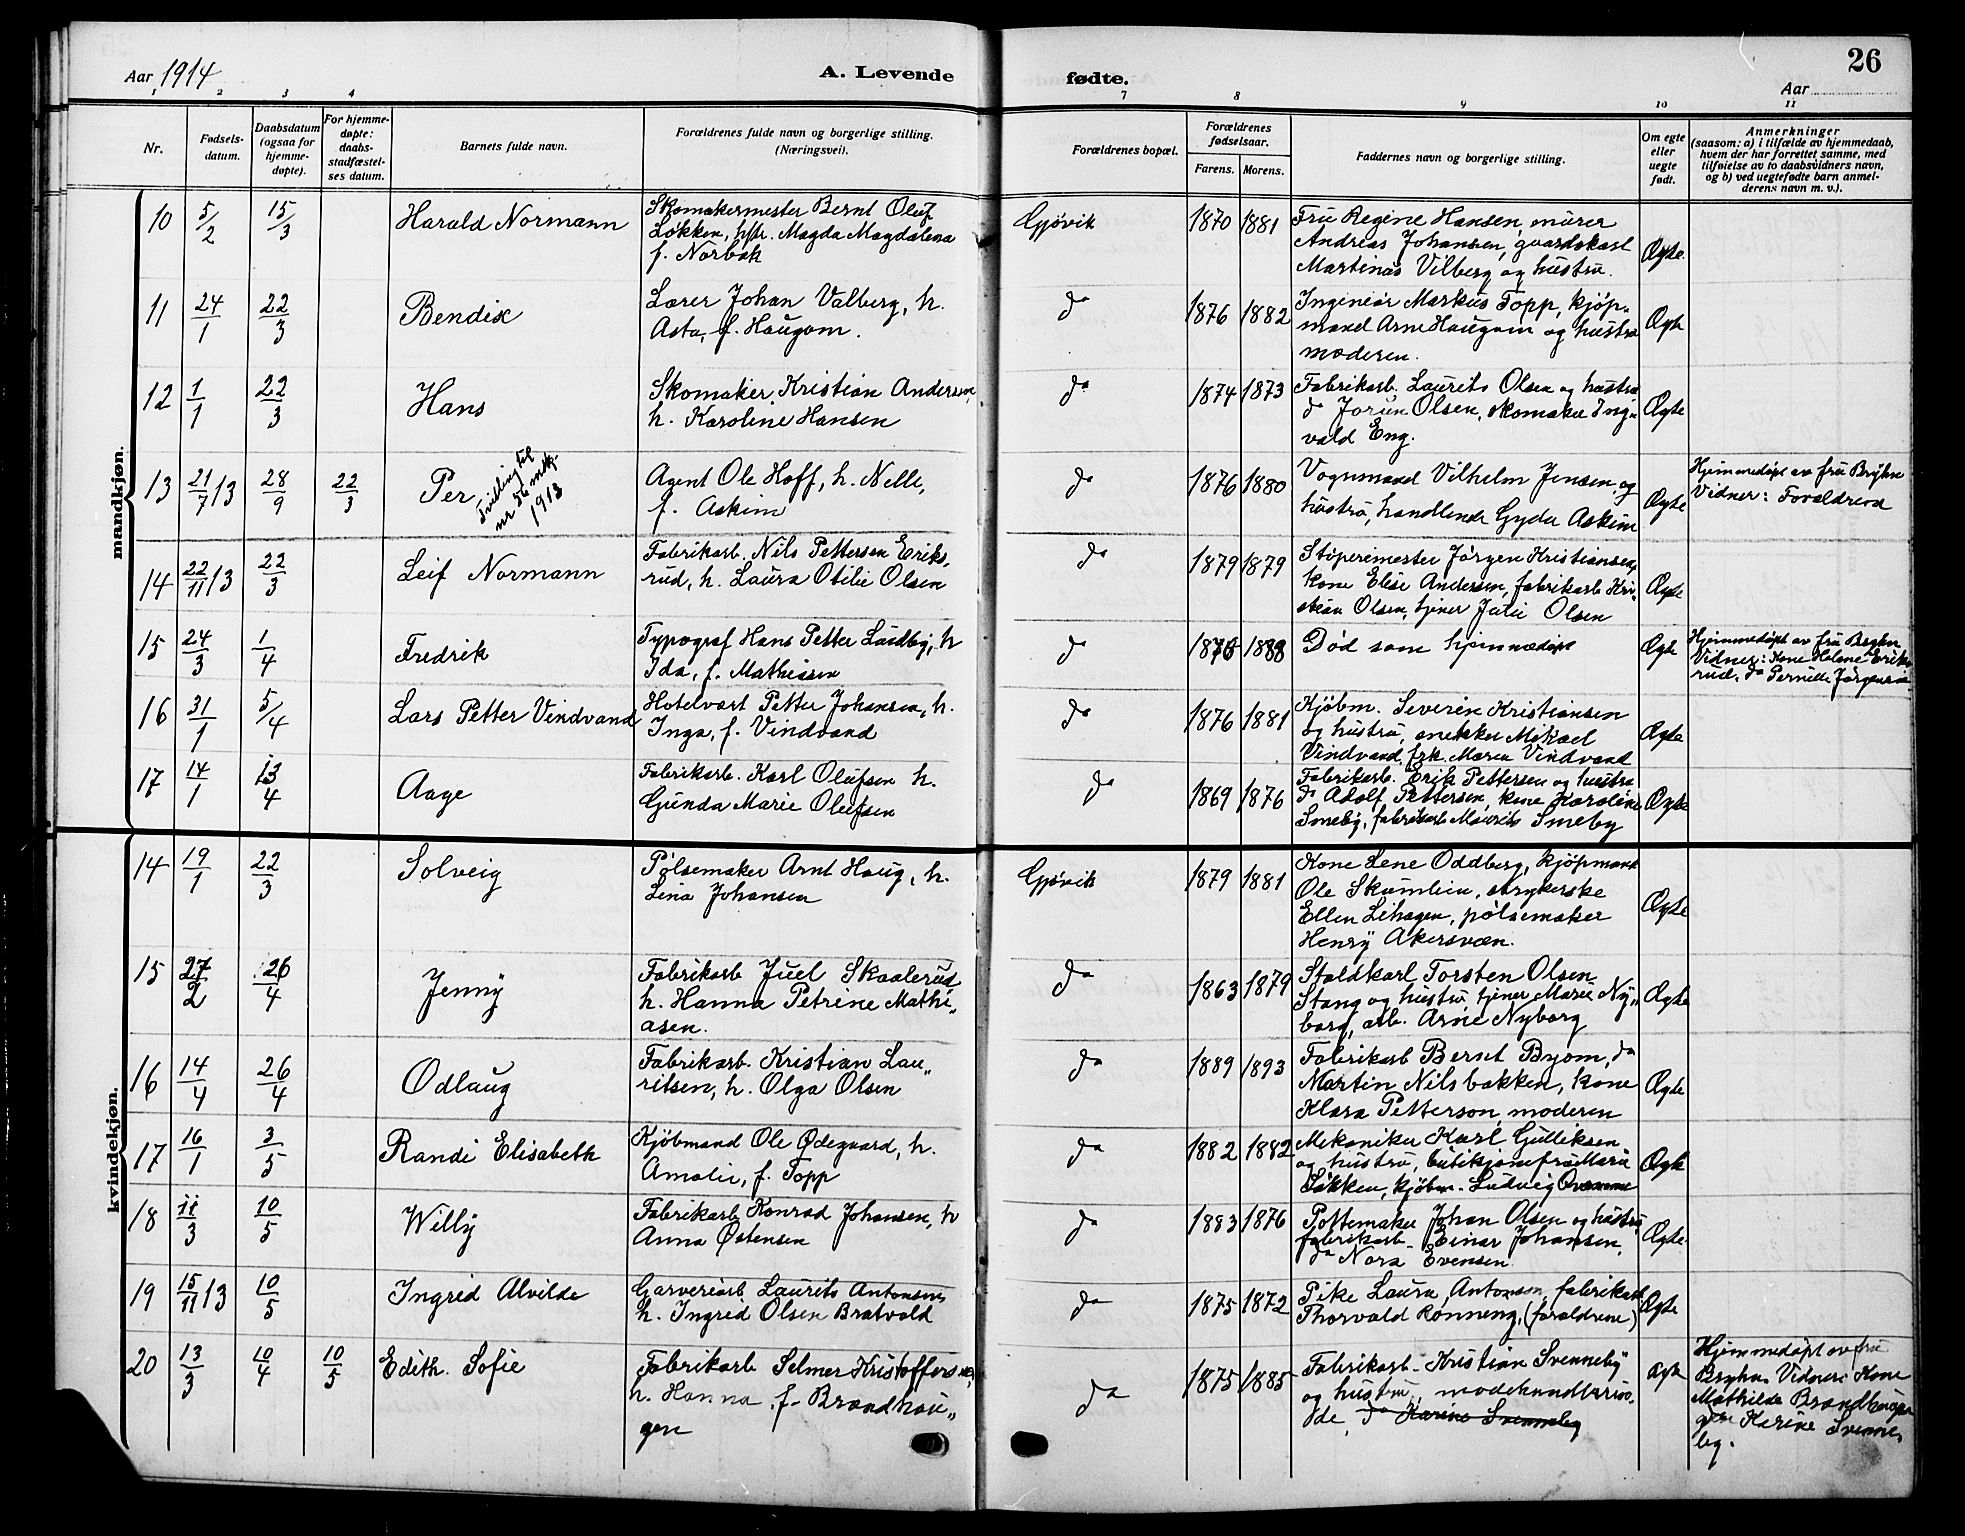 Aar 1914
A. Levende fødte.
26
Aar
1 2 3 4 7 8 9 10 11
Nr.
Fødsels-
datum.
Daabsdatum
(ogsaa for
hjemme-
døpte).
For hjemme-
døpte:
daabs-
stadfæstel-
ses datum.
Barnets fulde navn.
Forældrenes fulde navn og borgerlige stilling.
(Næringsvei).
Forældrenes bopæl.
Forældrenes
fødselsaar.
Farens. Morens.
Faddernes navn og borgerlige stilling.
Om egte
eller
uegte
født.
Anmerkninger
(saasom: a) i tilfælde av hjemmedaab,
hvem der har forrettet samme, med
tilføielse av to daabsvidners navn,
og b) ved uegtefødte barn anmel-
derens navn m. v.).
mandkjøn.
10 5/2 15/3 Harald Normann
Skomakermester Bernt Oluf
Løkken, h. Magda Magdalena
f. Norbak
Gjøvik 1870 1881
Fru Regine Hansen, murer
Andreas Johansen, gaardskarl
Martinus Vilberg og hustru.
Ægte.
11 24/1 22/3 Bendix
Lærer Johan Valberg, h.
Asta, f. Haugom.
do 1876 1882
Ingeniør Markus Topp, kjøp-
mand Arne Haugom og hustru
moderen.
Ægte
12 1/1 22/3 Hans
Skomaker Kristian Andersen
h. Karoline Hansen
do 1874 1873
Fabrikarb. Laurits Olsen og hustru
do Jorun Olsen, skomaker Ing-
vald Eng.
Ægte
13 21/7 13 28/9 22/3 Per,
Tvilling til
nr 56 mdkj.
1913
Agent Ole Hoff, h. Nelle,
f. Askim
do 1876 1880
Vognmand Vilhelm Jensen og
hustru, handlende Gyda Askim
Ægte
Hjemmedøpt av fru Bryhn
Vidner: Forældrene
14 22/11 13 22/3 Leif Normann
Fabrikarb. Nils Pettersen Eriks-
rud, h. Laura Otilie Olsen
do 1879 1879
Støperimester Jørgen Kristiansen,
kone Elise Andersen, fabrikarb Kri-
stian Olsen, tjener Julie Olsen
Ægte
15 24/3 1/4 Fredrik
Typograf Hans Petter Lundby, h
Ida, f. Mathisen
do 1876 1888
Død som hjemmedøpt
Ægte
Hjemmedøpt av fru Bryhn
Vidner: Kone Helene Eriks-
rud, do Pernille Jørgensen
16 31/1 5/4 Lars Petter Vindvand
Hotelvært Petter Johansen, h.
Inga, f. Vindvand
do 1876 1881
Kjøbm. Severin Kristiansen
og hustru, snekker Mikael
Vindvand, frk. Maren Vindvand
Ægte
17 14/1 13/4 Aage
Fabrikarb. Karl Olufsen h.
Gunda Marie Olufsen
do 1869 1876
Fabrikarb. Erik Pettersen og hustru
do Adolf Pettersen, kone Karoline
Smeby, fabrikarb Maurits Smeby
Ægte
kvindekjøn.
14 19/1 22/3 Solveig
Pølsemaker Arnt Haug, h.
Lina Johansen
Gjøvik 1879 1881
Kone Lene Oddberg, kjøpmand
Ole Skumlien, strykerske
Ellen Lihagen, pølsemaker
Henry Akersvæn.
Ægte
15 27/2 26/4 Jenny
Fabrikarb Juel Skaalerud
h. Hanna Petrine Mathi-
asen.
do 1863 1879
Staldkarl Torsten Olsen
Stang og hustru tjener Marie Ny-
borg, arb. Arne Nyborg
Ægte
16 14/4 26/4 Odlaug
Fabrikarb. Kristian Lau-
ritsen, h. Olga Olsen
do 1889 1893
Fabrikarb Bernt Byom, do
Martin Nilsbakken, kone
Klara Petterson, moderen
Ægte
17 16/1 3/5 Randi Elisabeth
Kjøbmand Ole Ødegaard, h.
Amalie, f. Topp
do 1882 1882
Mekaniker Karl Gulliksen
og hustru, butikjomfru Marie
Løkken, kjøbm. Ludvig
Ægte
18 11/3 10/5 Willy
Fabrikarb Konrad Johansen, h
Anna Østensen
do 1883 1876
Pottemaker Johan Olsen og hustru,
fabrikarb. Einar Johansen,
do Nora Evensen
Ægte.
19 15/11 13 10/5 Ingrid Alvilde
Garveriarb Laurits Antonsen
h. Ingrid Olsen Bratvold
do 1875 1872
Pike Laura Antonsen, fabrikarb
Thorvald Rønneng, (forældrene)
Ægte
20 13/3 10/4 10/5 Edith Sofie
Fabrikarb Selmer Kristoffersen,
h. Hanna, f. Brandhau-
gen
do 1875 1885
Fabrikarb. Kristian Svenneby
og hustru, modehandlerin-
de, do Karine Svenneby
Ægte
Hjemmedøpt av fru
Bryhn. Vidner: Kone
Mathilde Brandhaugen
Karine Svenne-
by.